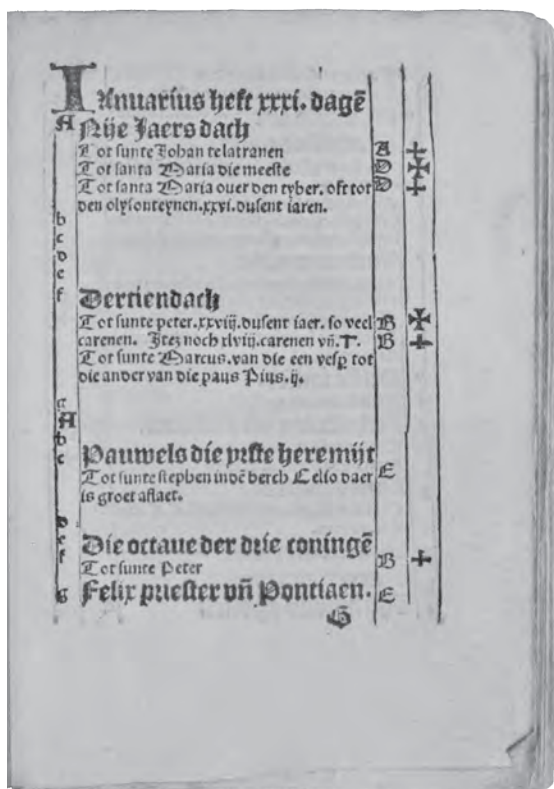 IAnuarius heft xxxi. dagē
A Nije Jaers dach
Tot sunte Johan telatranen A ✚
Tot santa Maria die meeste D ✠
Tot santa Maria ouer den tyber. oft tot D ✚
den olyfonteynen.xxvi.dusent iaren.
b
c
d
e
f Dertiendach
Tot sunte peter.xxviij.dusent iaer. so veel B ✠
carenen. Itez noch xlviij.carenen vn̄.T. B ✚
Tot sunte Marcus.van die een vesp̱ tot
die ander van die paus Pius.ij.
A
b
c Pauwels die yrste heremijt
Tot sunte stephen indē berch Celio daer E
is groet aflaet.
d
e
f Die octaue der drie coningē
Tot sunte Peter B ✚
g Felix priester vn̄ Pontiaen. E
G